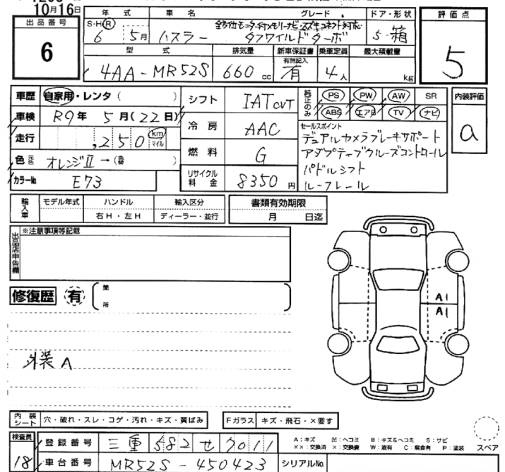 10月16日
出品番号
6
年式 車名 グレード ドア・形状
S・H・R 6年 5月 ハスラー タフワイルドターボ 5・箱
型式 排気量 新車保証書 乗車定員 最大積載量
4AA-MR52S 660cc 有無記入 有 4人 kg
評価点
5
車歴 自家用・レンタ ( )
車検 R9年 5月(22日)
走行 ,250 km マイル
色 オレンジII→(
カラーNo E73
シフト IAT CVT
冷房 AAC
燃料 G
リサイクル料金 8350円
純正のみ PS PW AW SR
ABS エアB TV ナビ
内装評価
a
セールスポイント
デュアルカメラブレーキサポート
アダプテーブクルーズコントロール
パドルシフト
ルーフレール
輸入車 モデル年式 ハンドル 輸入区分 書類有効期限
右H・左H ディーラー・並行 月 日迄
出品店申告欄 ※注意事項等記載
修復歴 有 箇所
A1
A1
外装A
内装シート 穴・破れ・スレ・コゲ・汚れ・キズ・黄ばみ Fガラス キズ・飛石・×要す
検査員
18
登録番号 三重 582 せ 7011
車台番号 MR52S-450423 シリアルNo
A:キズ U:凹ミ B:キズ&ヘコミ S:サビ
××:交換済 ×:要交換 W:波有 C:腐食有 P:塗装
スペア